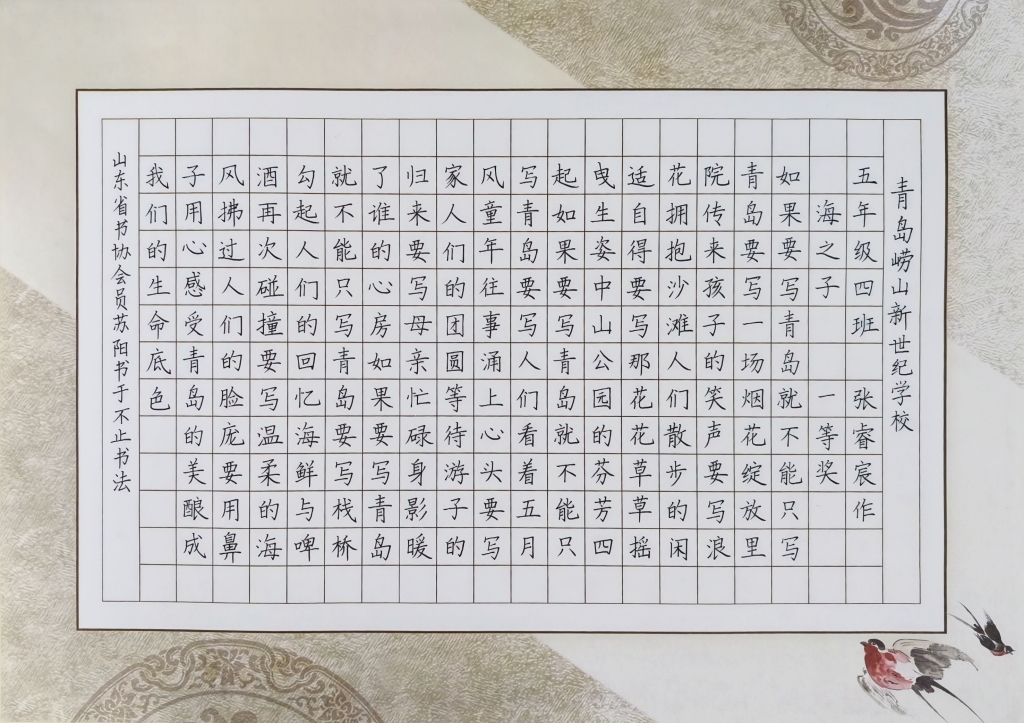 青岛崂山新世纪学校
五年级四班 张睿宸作
海之子 一等奖
如果要写青岛就不能只写
青岛要写一场烟花绽放里
院传来孩子的笑声要写浪
花拥抱沙滩人们散步的闲
适自得要写那花花草草摇
曳生姿中山公园的芬芳四
起如果要写青岛就不能只
写青岛要写人们看着五月
风童年往事涌上心头要写
家人们的团圆等待游子的
归来要写母亲忙碌身影暖
了谁的心房如果要写青岛
就不能只写青岛要写栈桥
勾起人们的回忆海鲜与啤
酒再次碰撞要写温柔的海
风拂过人们的脸庞要用鼻
子用心感受青岛的美酿成
我们的生命底色
山东省书协会员苏阳书于不止书法